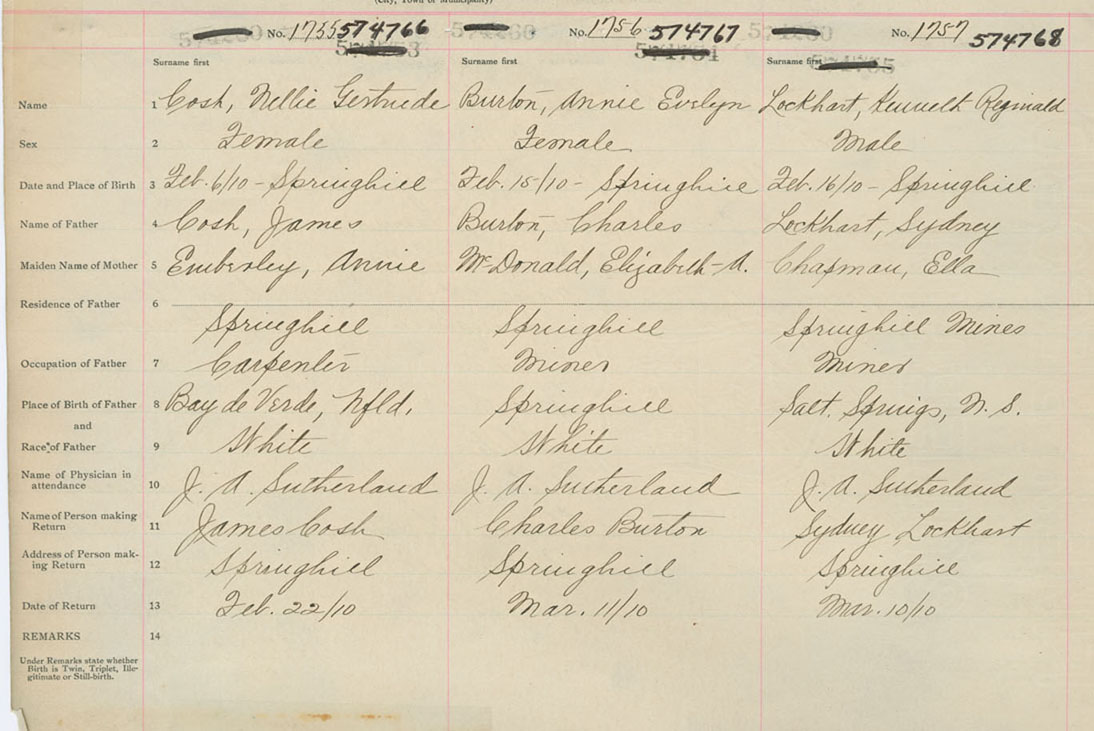 (City, Town or Municipality)
No. 1755 574766 No. 1756 574767 No. 1757 574768
Surname first Surname first Surname first
Name 1 Cosh, Nellie Gertrude Burton, Annie Evelyn Lockhart, Kenneth Reginald
Sex 2 Female Female Male
Date and Place of Birth 3 Feb. 6/10 - Springhill Feb. 15/10 - Springhill Feb. 16/10 - Springhill
Name of Father 4 Cosh, James Burton, Charles Lockhart, Sydney
Maiden Name of Mother 5 Emberley, Annie McDonald, Elizabeth A. Chapman, Ella
Residence of Father 6
Springhill Springhill Springhill Mines
Occupation of Father 7 Carpenter Miner Miner
Place of Birth of Father 8 Bay de Verde, Nfld. Springhill Salt Springs, N. S.
and
Race of Father 9 White White White
Name of Physician in
attendance 10 J. A. Sutherland J. A. Sutherland J. A. Sutherland
Name of Person making
Return 11 James Cosh Charles Burton Sydney Lockhart
Address of Person mak-
ing Return 12 Springhill Springhill Springhill
Date of Return 13 Feb. 22/10 Mar. 11/10 Mar. 10/10
REMARKS 14
Under Remarks state whether
Birth is Twin, Triplet, Ille-
gitimate or Still-birth.